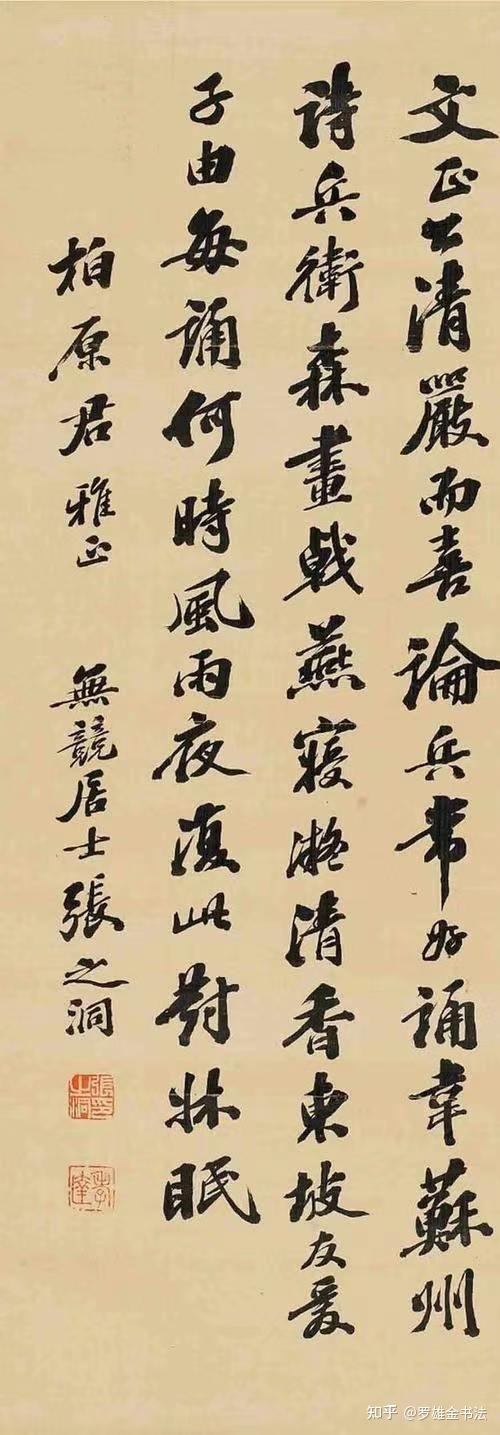 文正公清嚴而喜論兵常好誦韋蘇州
詩兵衛森畫戟燕寢凝清香東坡友愛
子由每誦何時風雨夜復此對牀眠
柏原君雅正
無競居士張之洞
張之洞印
孝達
知乎 @罗雄金书法